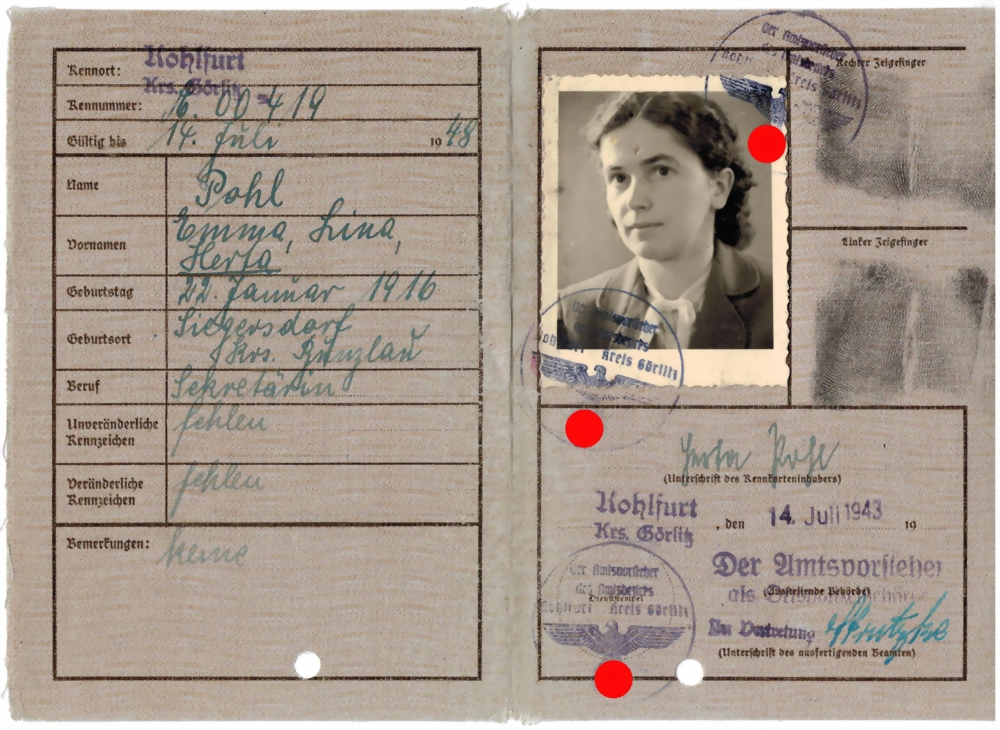 Kennort:
Kohlfurt
Krs. Görlitz
Kennummer: 16. 00419
Gültig bis 14. Juli 1948
Name Pohl
Vornamen Emma, Lina,
Herta
Geburtstag 22. Januar 1916
Geburtsort Siegersdorf
Krs. Bunzlau
Beruf Sekretärin
Unveränderliche
Kennzeichen fehlen
Veränderliche
Kennzeichen fehlen
Bemerkungen: keine
Der Amtsvorsteher
des Amtsbezirks
Kreis Görlitz
Rechter Zeigefinger
Linker Zeigefinger
Der Amtsvorsteher
des Amtsbezirks
Kohlfurt Kreis Görlitz
Herta Pohl
(Unterschrift des Kennkarteninhabers)
Kohlfurt
Krs. Görlitz, den 14. Juli 1943 19
Der Amtsvorsteher
des Amtsbezirks
Dienststempel
Kohlfurt Kreis Görlitz
Der Amtsvorsteher
als Ortspolizeibehörde
(Ausstellende Behörde)
In Vertretung
(Unterschrift des ausfertigenden Beamten)